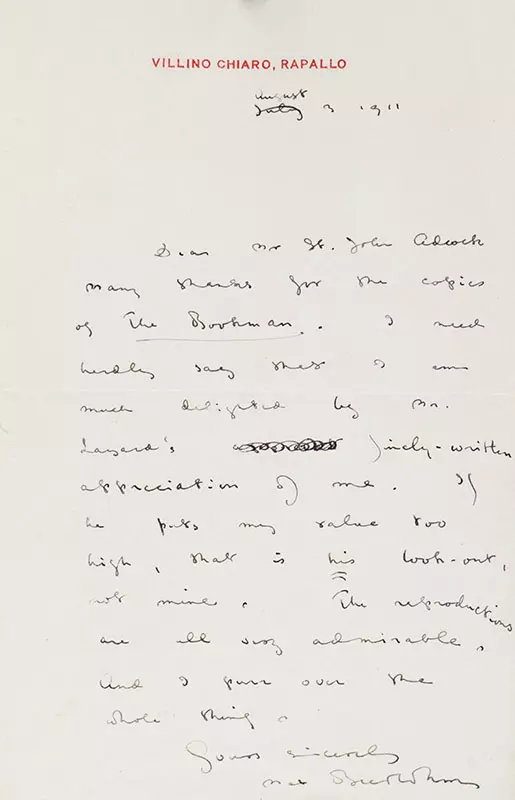 VILLINO CHIARO, RAPALLO
August
July 3 1911
Dear Mr St. John Adcock
Many thanks for the copies
of The Bookman. I need
hardly say that I am
much delighted by Mr.
Layard's finely-written
appreciation of me. If
he puts my value too
high, that is his look-out,
not mine. The reproductions
are all very admirable,
and I purr over the
whole thing.
Yours sincerely
Max Beerbohm